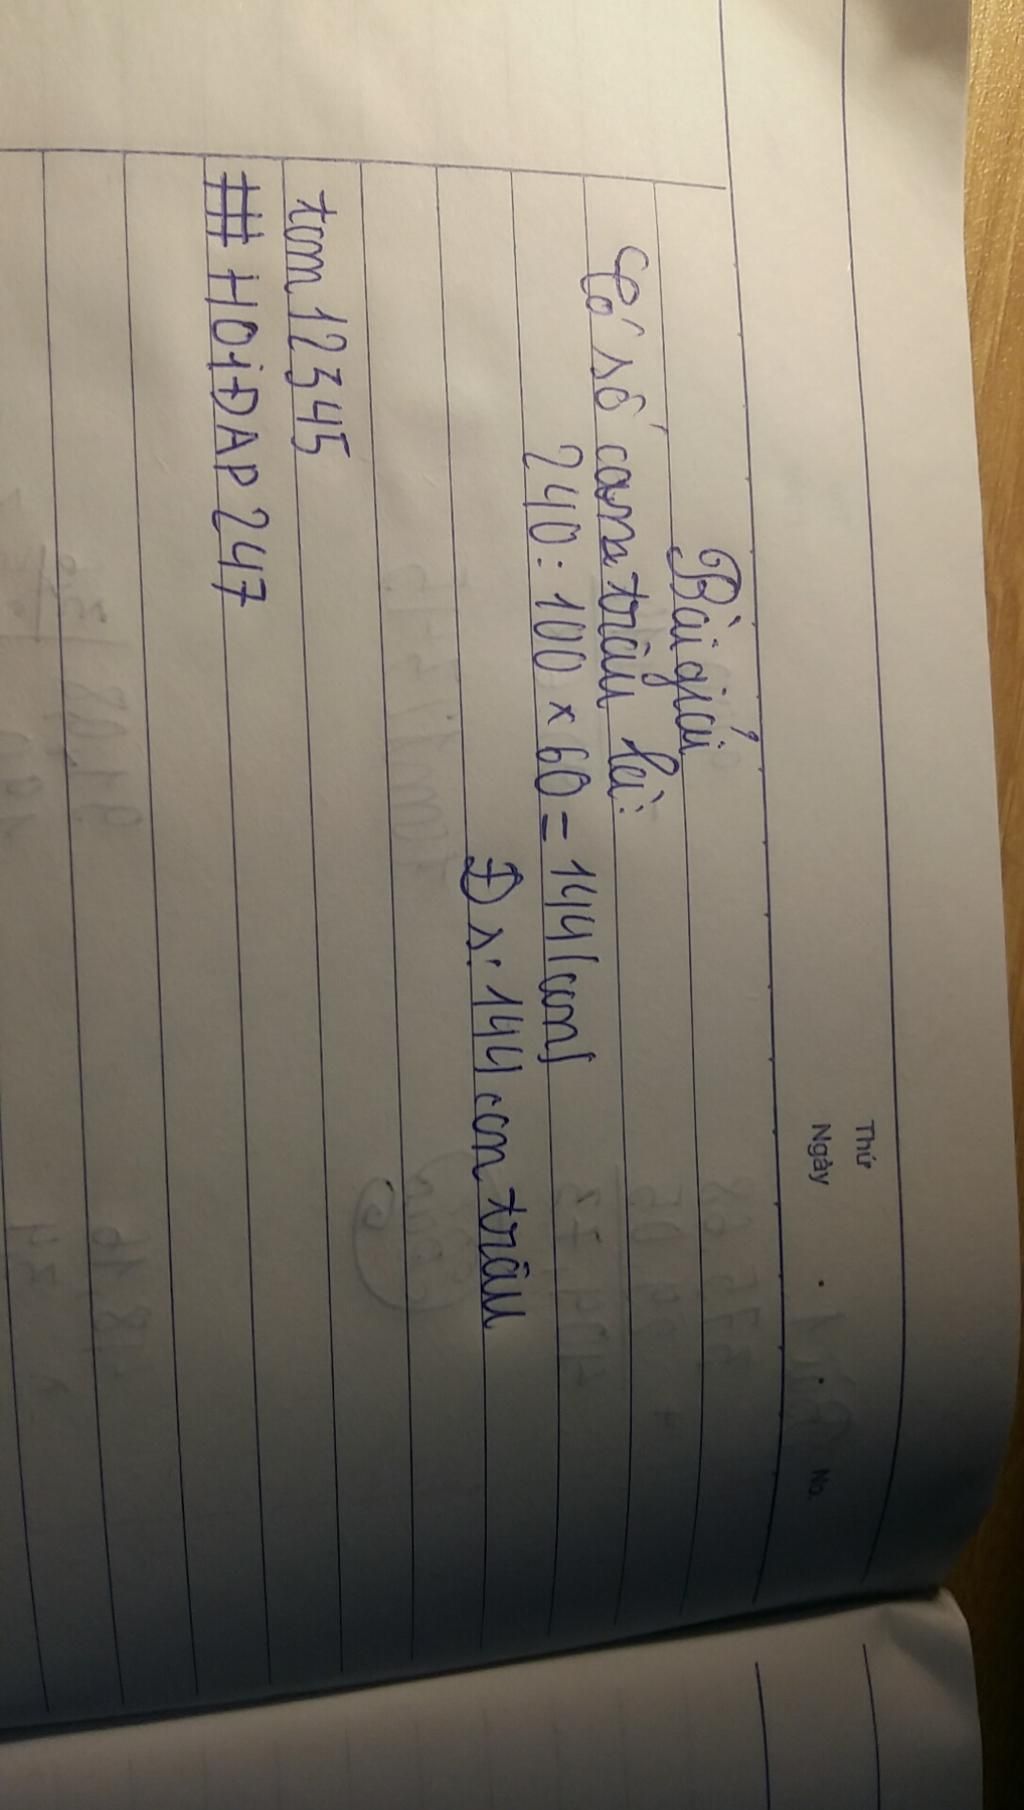 Thứ
Ngày . . No.
Bài giải
Có số con trâu là:
240 : 100 x 60 = 144 (con)
Đs: 144 con trâu
tom12345
# HOiĐAP 247